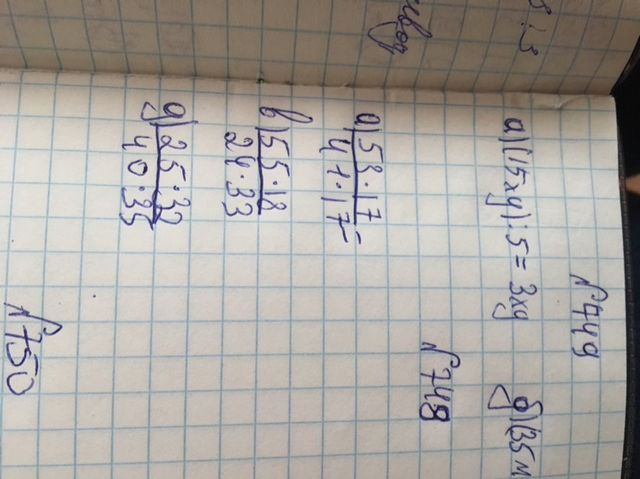 № 749
а) (15xy) : 5 = 3xy б) (35м
№ 748
а) 58 · 17
41 · 17
в) 55 · 18
24 · 33
д) 25 · 32
40 · 35
№ 750